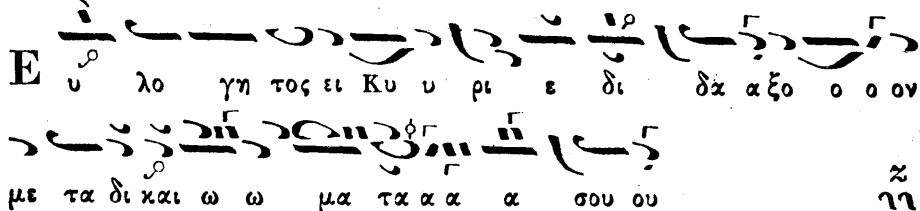 Ε υ λο γη τος ει Κυ υ ρι ε δι δα αξο ο ο ον
με τα δι και ω ω μα τα α α α σου ου